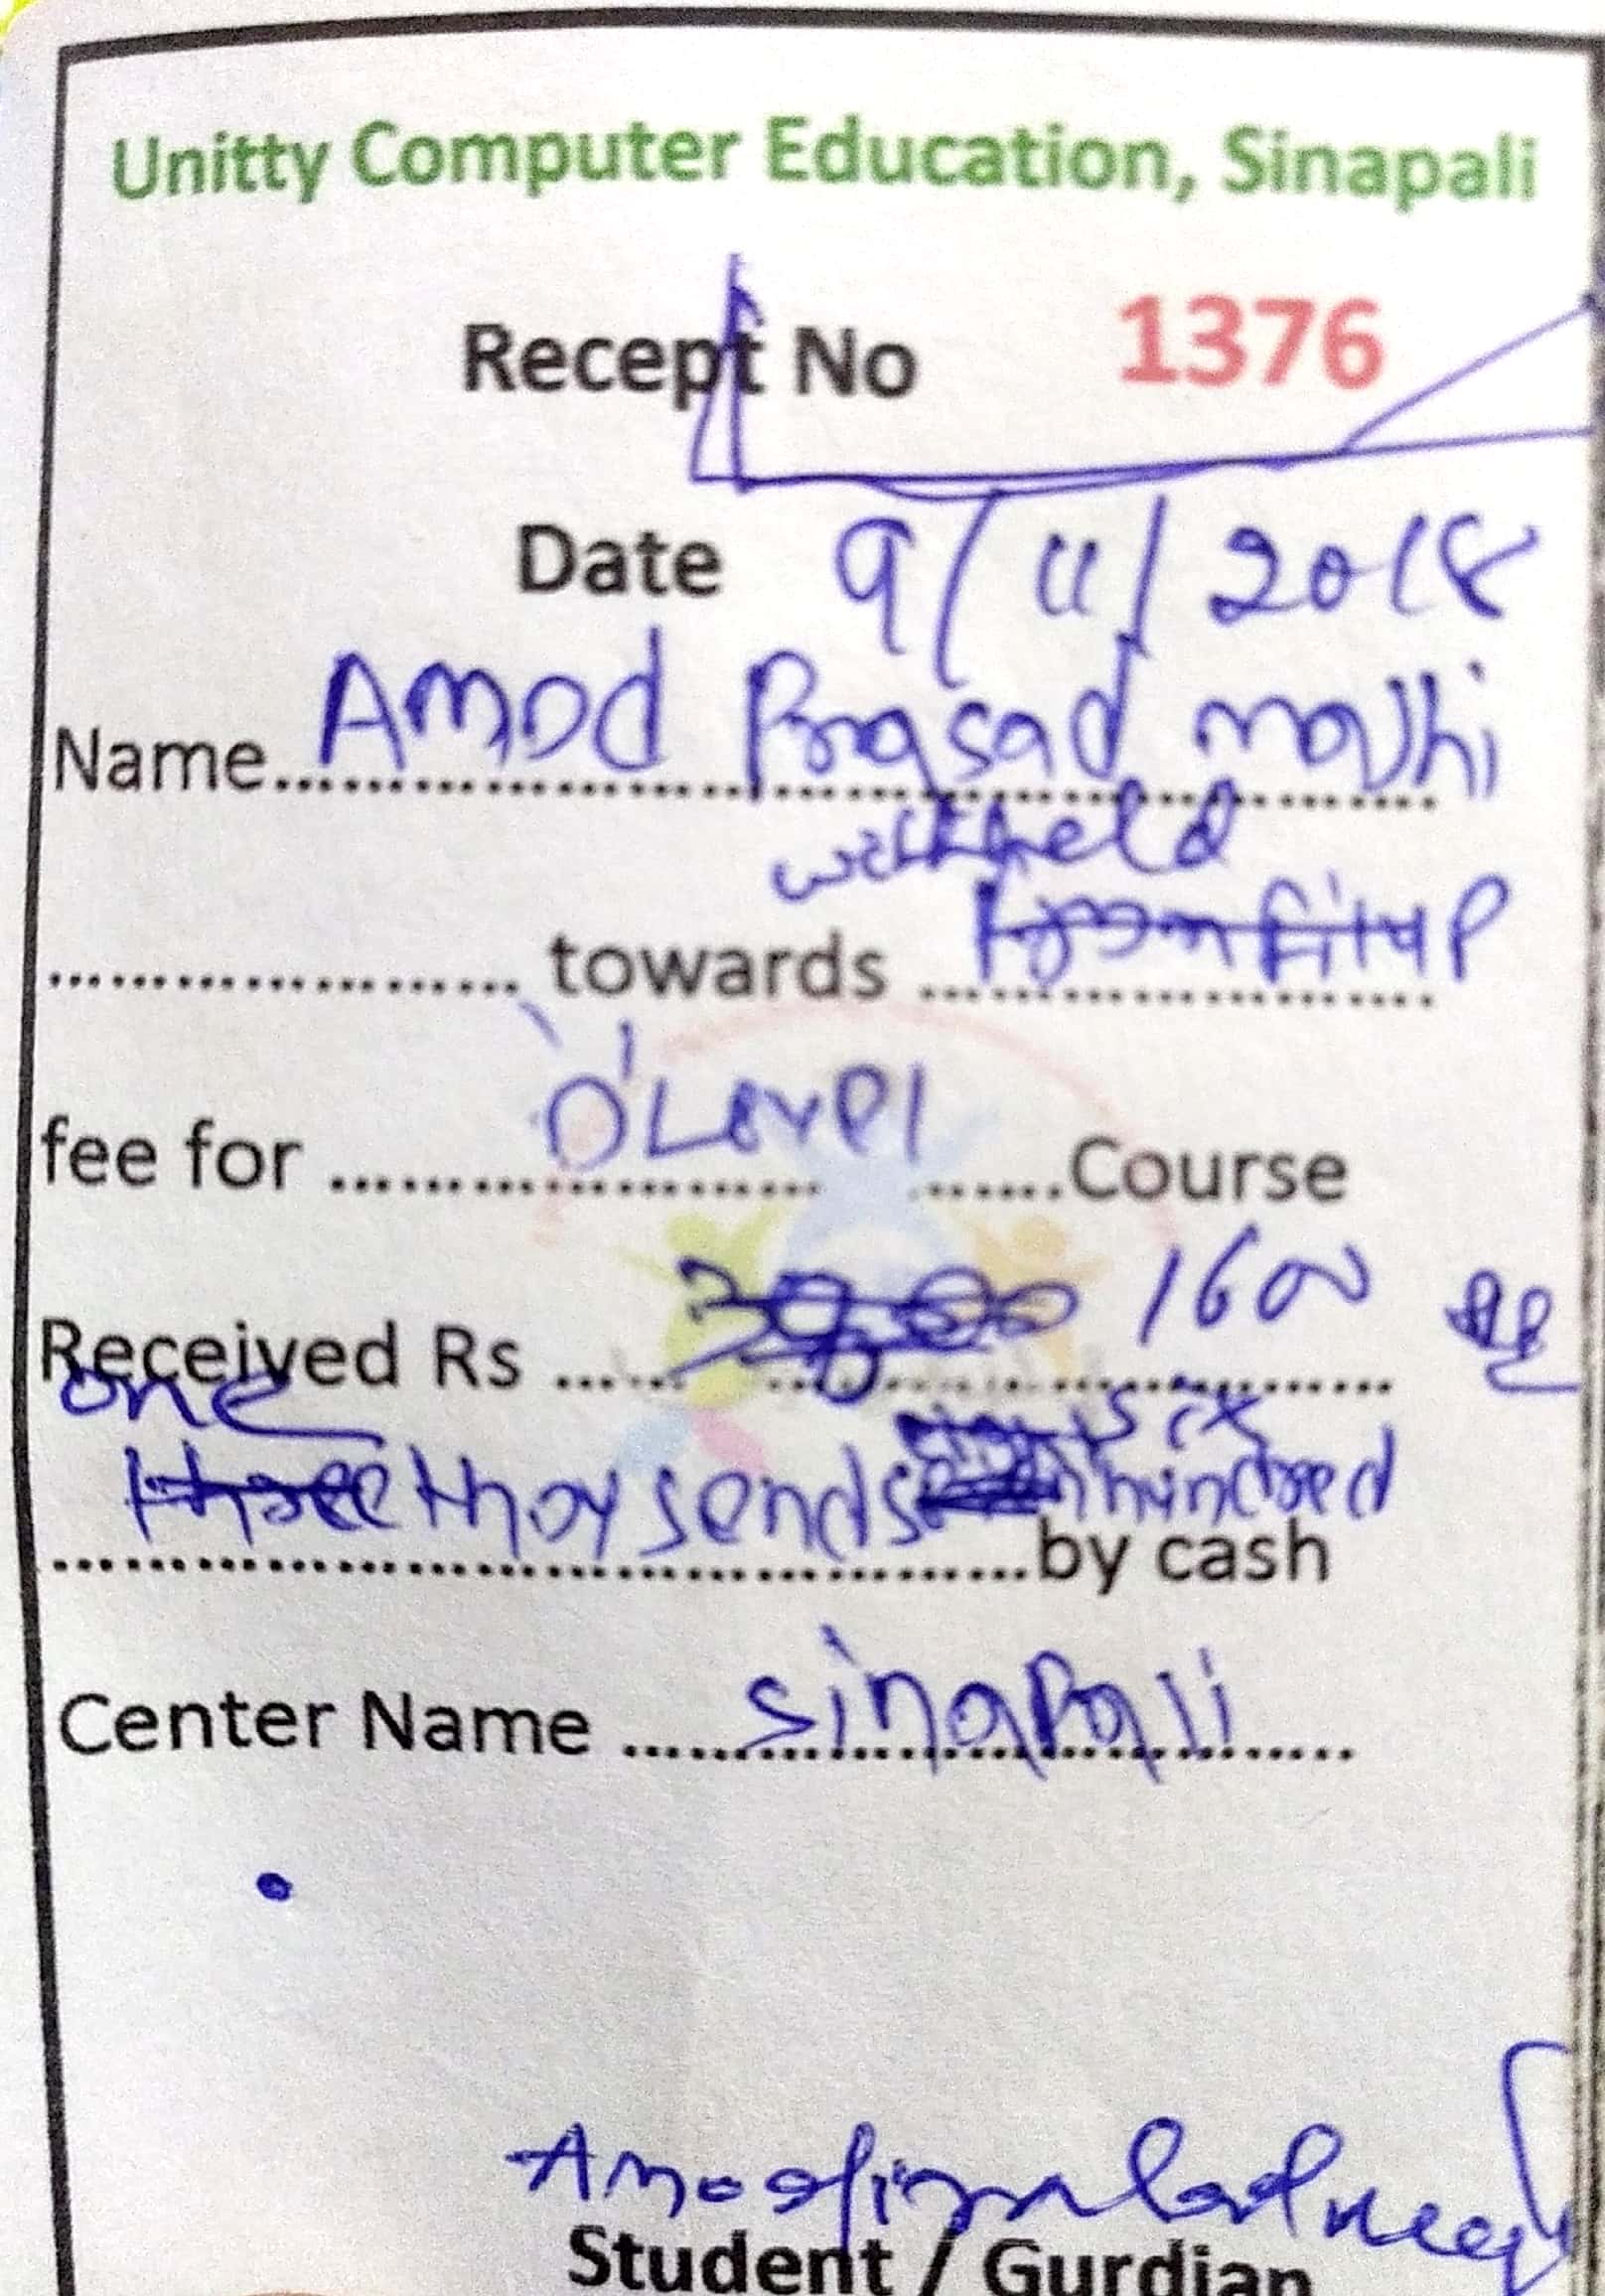 Unitty Computer Education, Sinapali
Recept No 1376
Date 9/11/2018
Name Amod Prasad majhi
withheld
towards form fillup
fee for 'O' Level Course
Received Rs 1600
one
three thousends six hundred
by cash
Center Name Sinapali
Student / Gurdian